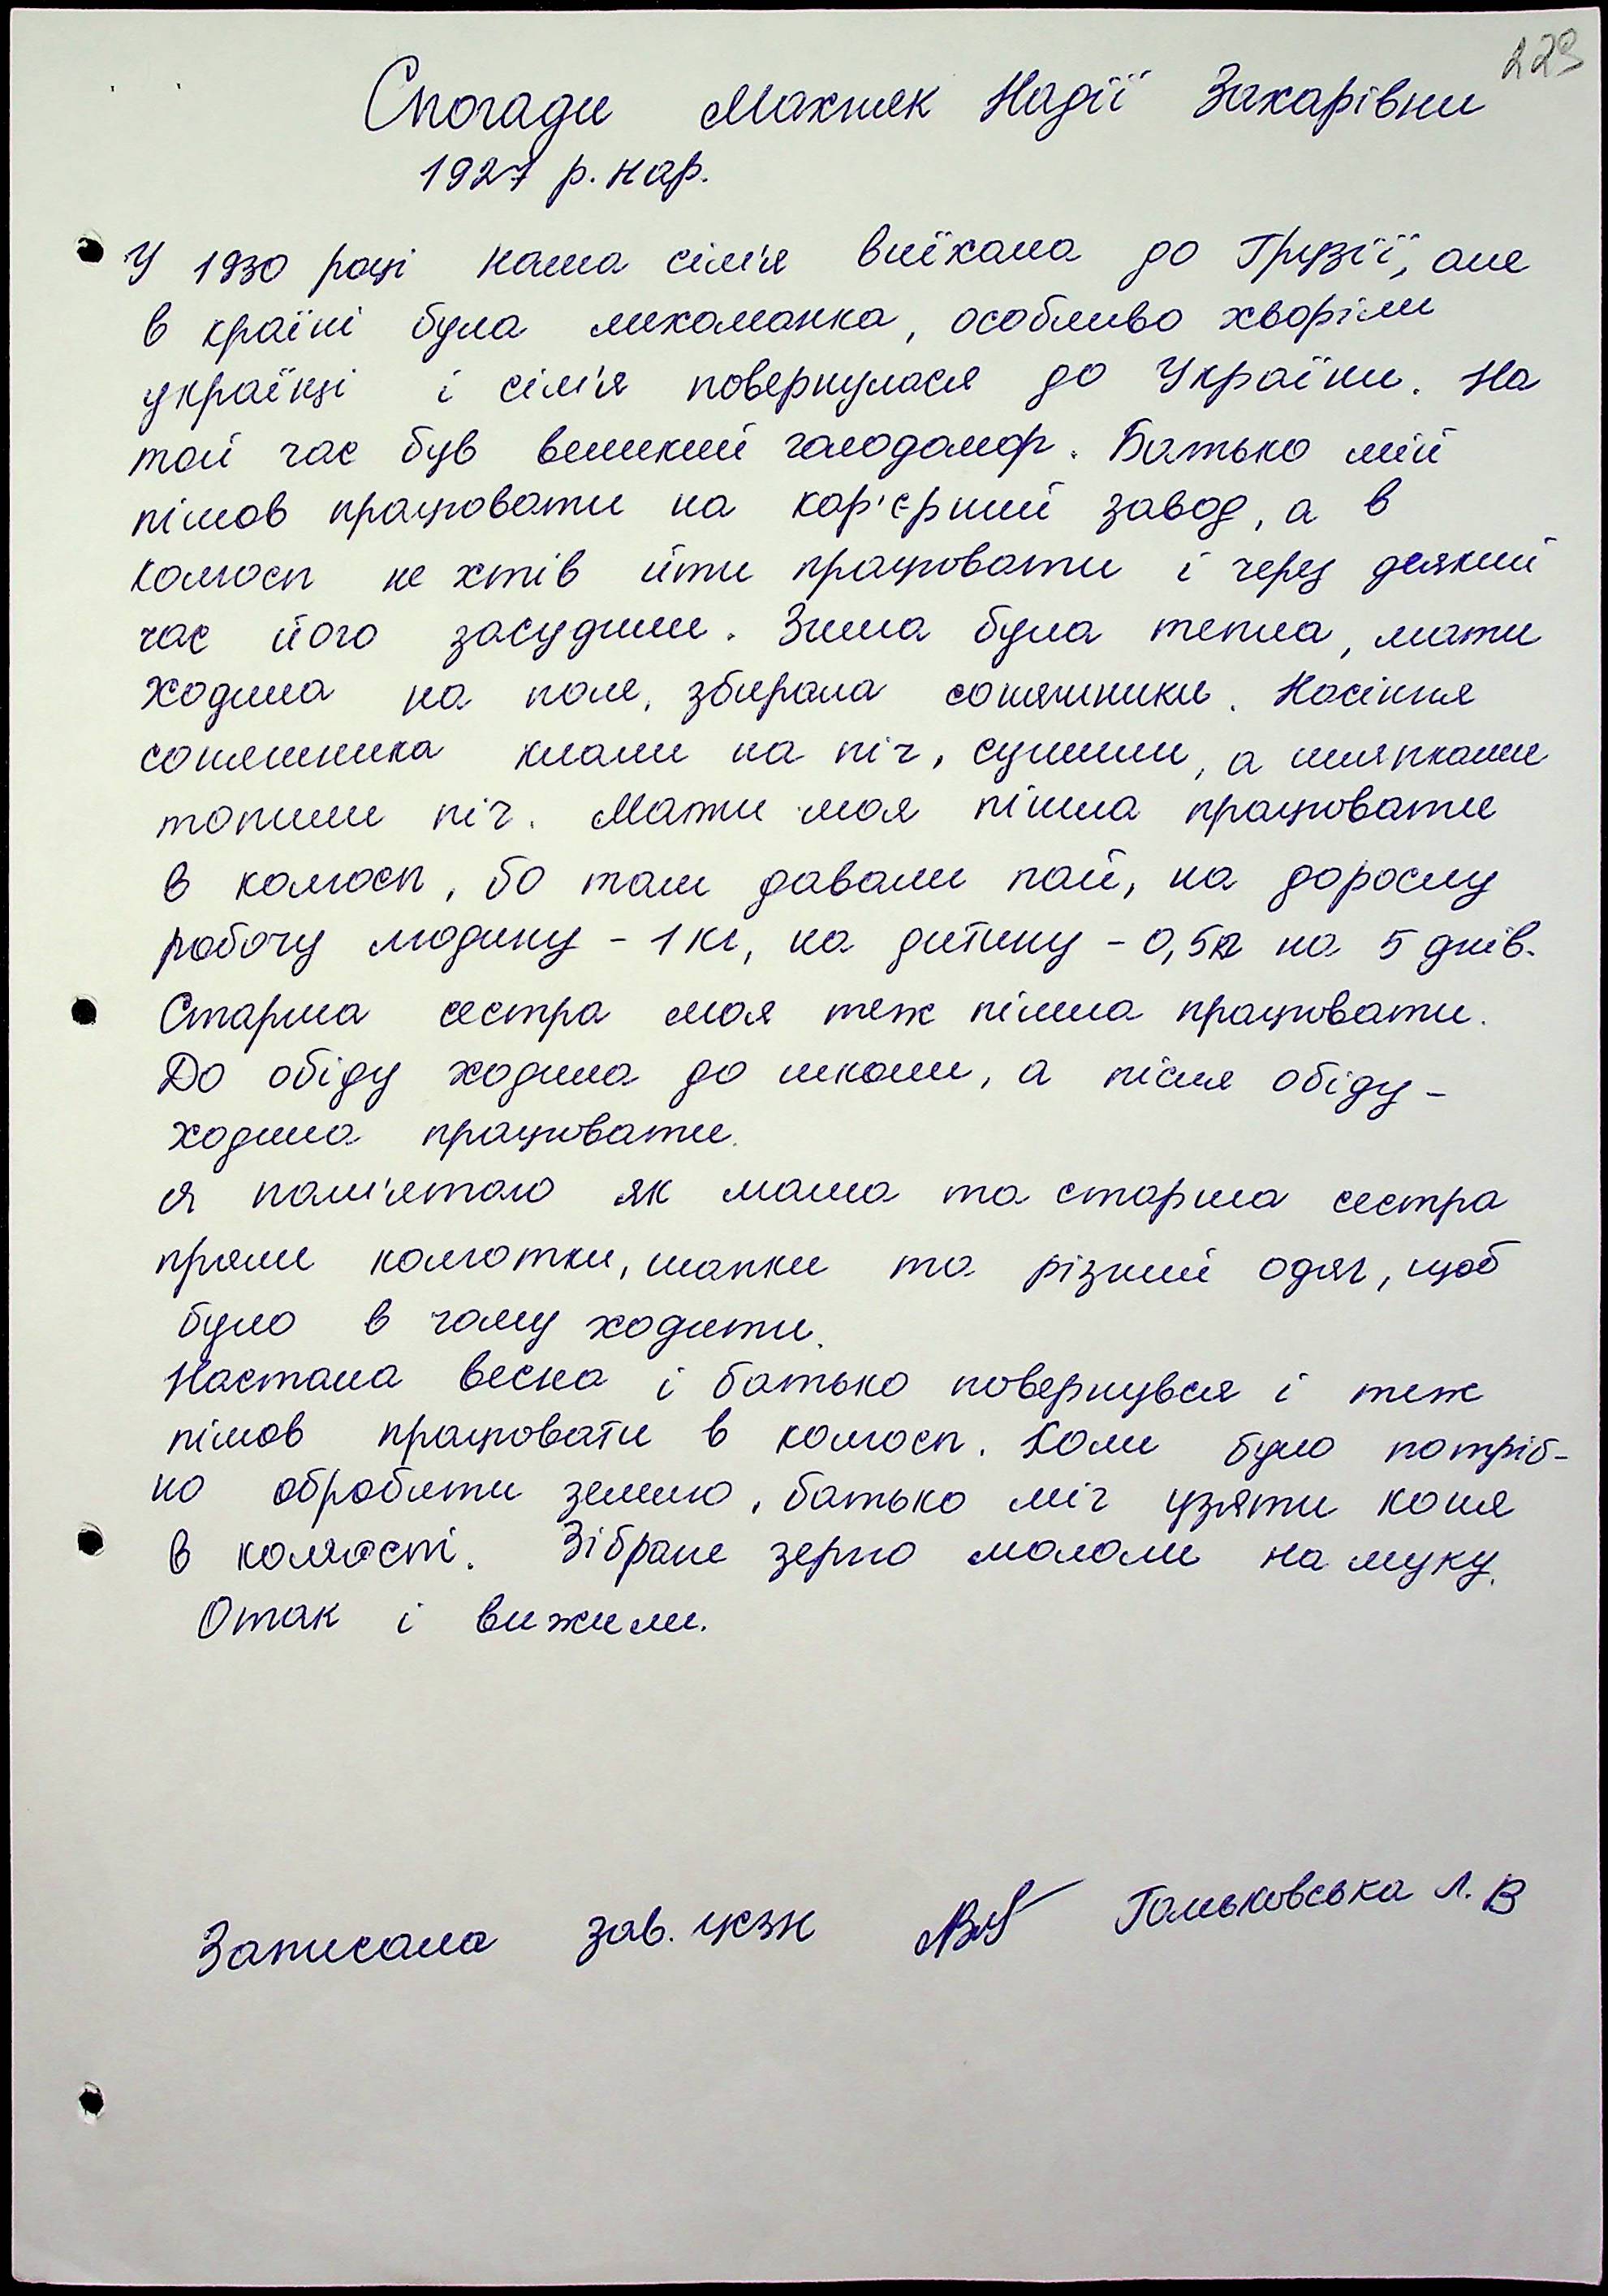 229
Спогади Махник Надії Захарівни
1927 р. нар.
У 1930 році наша сім'я виїхала до Грузії, але
в країні була лихоманка, особливо хворіли
українці і сім'я повернулася до України. На
той час був великий голодомор. Батько мій
пішов працювати на кар'єрний завод, а в
колгосп не хтів йти працювати і через деякий
час його засудили. Зима була тепла, мати
ходила на поле, збирала соняшники. Насіння
соняшника клали на піч, сушили, а шляпками
топили піч. Мати моя пішла працювати
в колгосп, бо там давали пай, на дорослу
робочу людину - 1 кг, на дитину - 0,5 кг на 5 днів.
Старша сестра моя теж пішла працювати.
До обіду ходила до школи, а після обіду -
ходила працювати.
Я пам'ятаю як мама та старша сестра
пряли колготки, шапки та різний одяг, щоб
було в чому ходити.
Настала весна і батько повернувся і теж
пішов працювати в колгосп. Коли було потріб-
но обробити землю, батько міг узяти коня
в колгоспі. Зібране зерно мололи на муку.
Отак і вижили.
Записала зав. ЦСЗН Гольковська Л. В